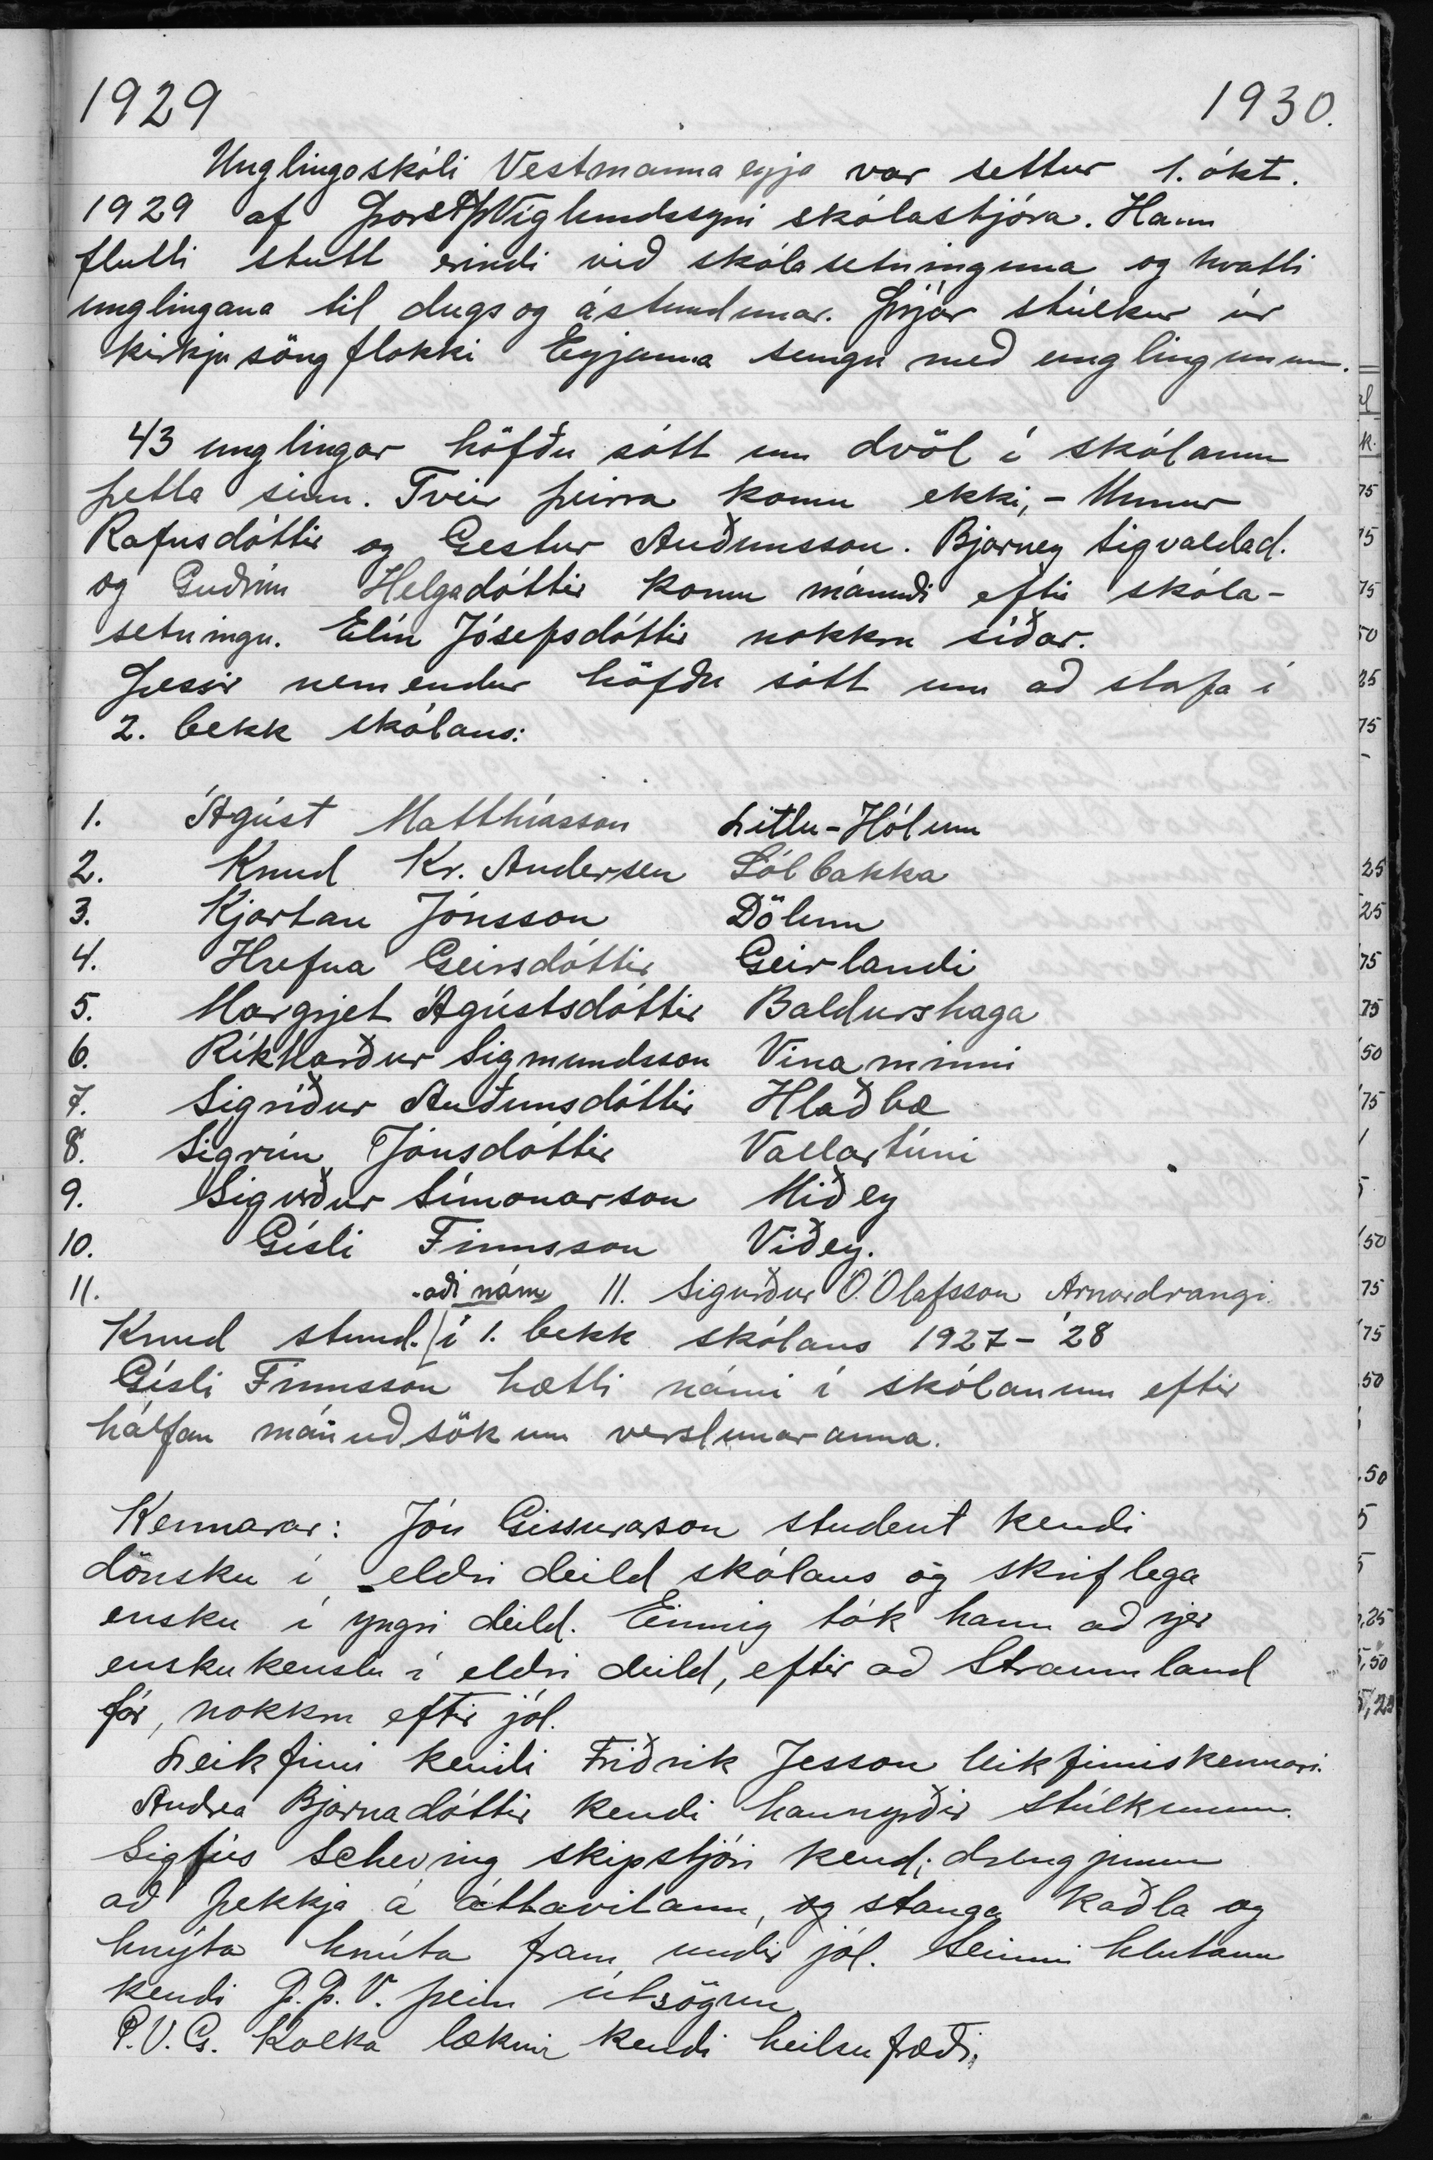 1929 1930.
Unglingaskóli Vestmannaeyja var settur 1. ókt.
1929 af Þorst. Þ. Víglundssyni skólastjóra. Hann
flutti stutt erindi við skólasetninguna og hvatti
unglingana til dugs og ástundunar. Þrjár stúlkur úr
kirkjusöngflokki Eyjanna sungu með unglingunum.
43 unglingar höfðu sótt um dvöl í skólanum
þetta sinn. Tveir þeirra komu ekki, - Unnur
Rafnsdóttir og Gestur Auðunsson. Bjarney Sigvaldad.
og Guðrún Helgadóttir komu mánuði eftir skóla-
setningu. Elín Jósefsdóttir nokkru síðar.
Þessir nemendur höfðu sótt um að starfa í
2. bekk skólans:
1. Ágúst Matthíasson Litlu-Hólum
2. Knud Kr. Andersen Sólbakka
3. Kjartan Jónsson Dölum
4. Hrefna Geirsdóttir Geirlandi
5. Margrjet Ágústsdóttir Baldurshaga
6. Ríkharður Sigmundsson Vinaminni
7. Sigríður Auðunsdóttir Hlaðbæ
8. Sigrún Jónsdóttir Vallartúni
9. Sigurður Símonarson Miðey
10. Gísli Finnsson Viðey.
11. -aði nám 11. Sigurður Ó. Ólafsson Arnardrangi.
Knud stund. í 1. bekk skólans 1927-'28
Gísli Finnsson hætti námi í skólanum eftir
hálfan mánuð sökum verslunaranna.
Kennarar: Jón Gissurarson student kendi
dönsku í eldri deild skólans og skriflega
ensku í yngri deild. Einnig tók hann að sjer
enskukenslu í eldri deild, eftir að Straumland
fór, nokkru eftir jól.
Leikfimi kendi Friðrik Jesson leikfimiskennari.
Andrea Bjarnadóttir kendi hannyrðir stúlkunum.
Sigfús Scheving skipstjóri kendi drengjunum
að þekkja á áttavitann, og stanga kaðla og
hnýta hnúta fram undir jól. Seinni hlutann
kendi Þ. Þ. V. þeim útsögun.
P. V. G. Kolka læknir kendi heilsufræði.